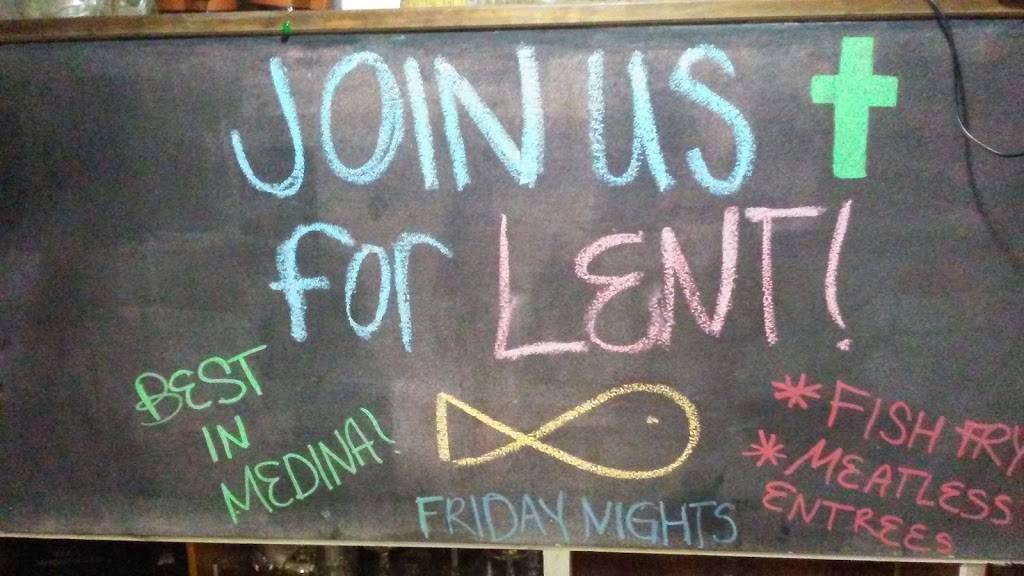 JOIN US
for LENT!
BEST
IN
MEDINA!
FRIDAY NIGHTS
* FISH FRY
* MEATLESS
ENTREES